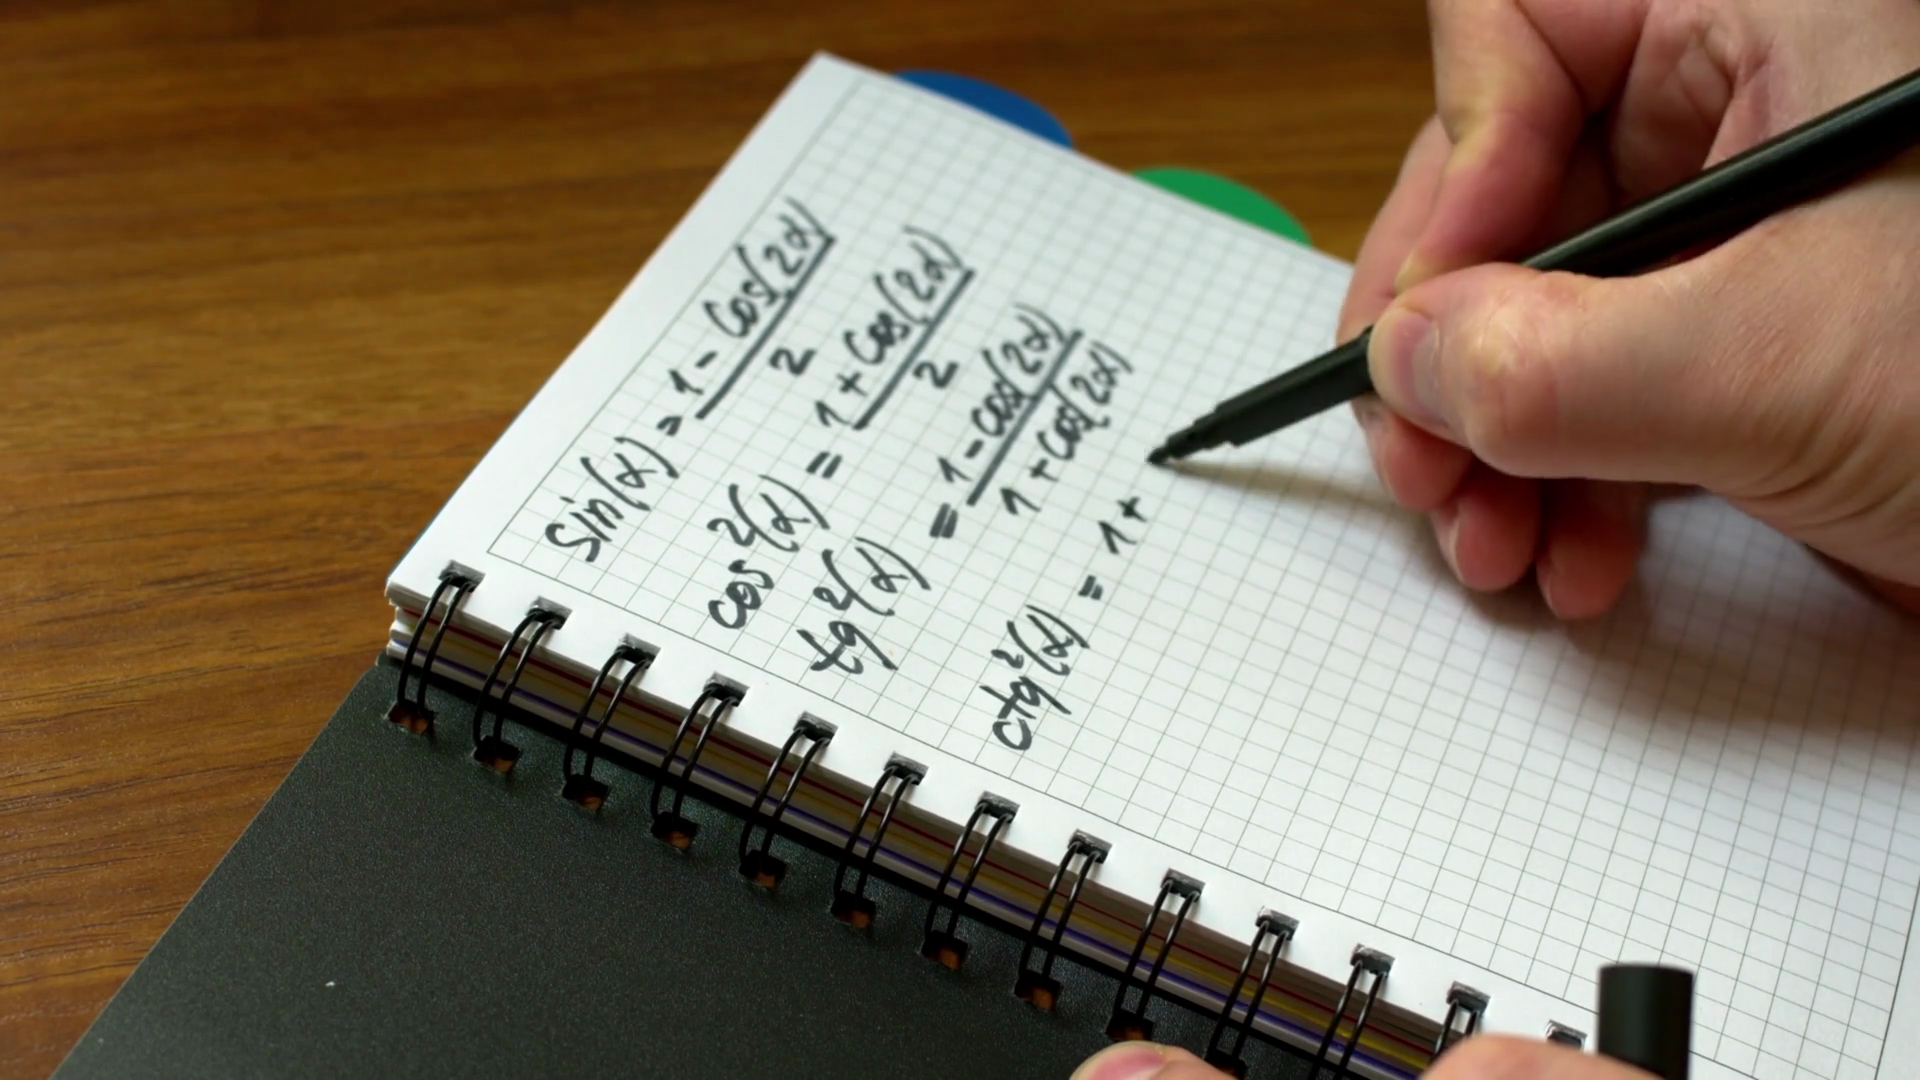 sin(α) = 1 - cos(2α) / 2
cos²(α) = 1 + cos(2α) / 2
tg²(α) = 1 - cos(2α) / 1 + cos(2α)
ctg²(α) = 1 +